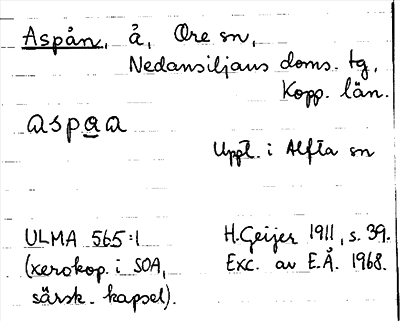 Aspån, å, Ore sn,
Nedansiljans doms. tg,
Kopp. län.
aspa̲a
Uppt. i Alfta sn
ULMA 565:1
(xerokop. i SOA,
särsk. kapsel).
H. Geijer 1911, s. 39.
Exc. av E.Å. 1968.